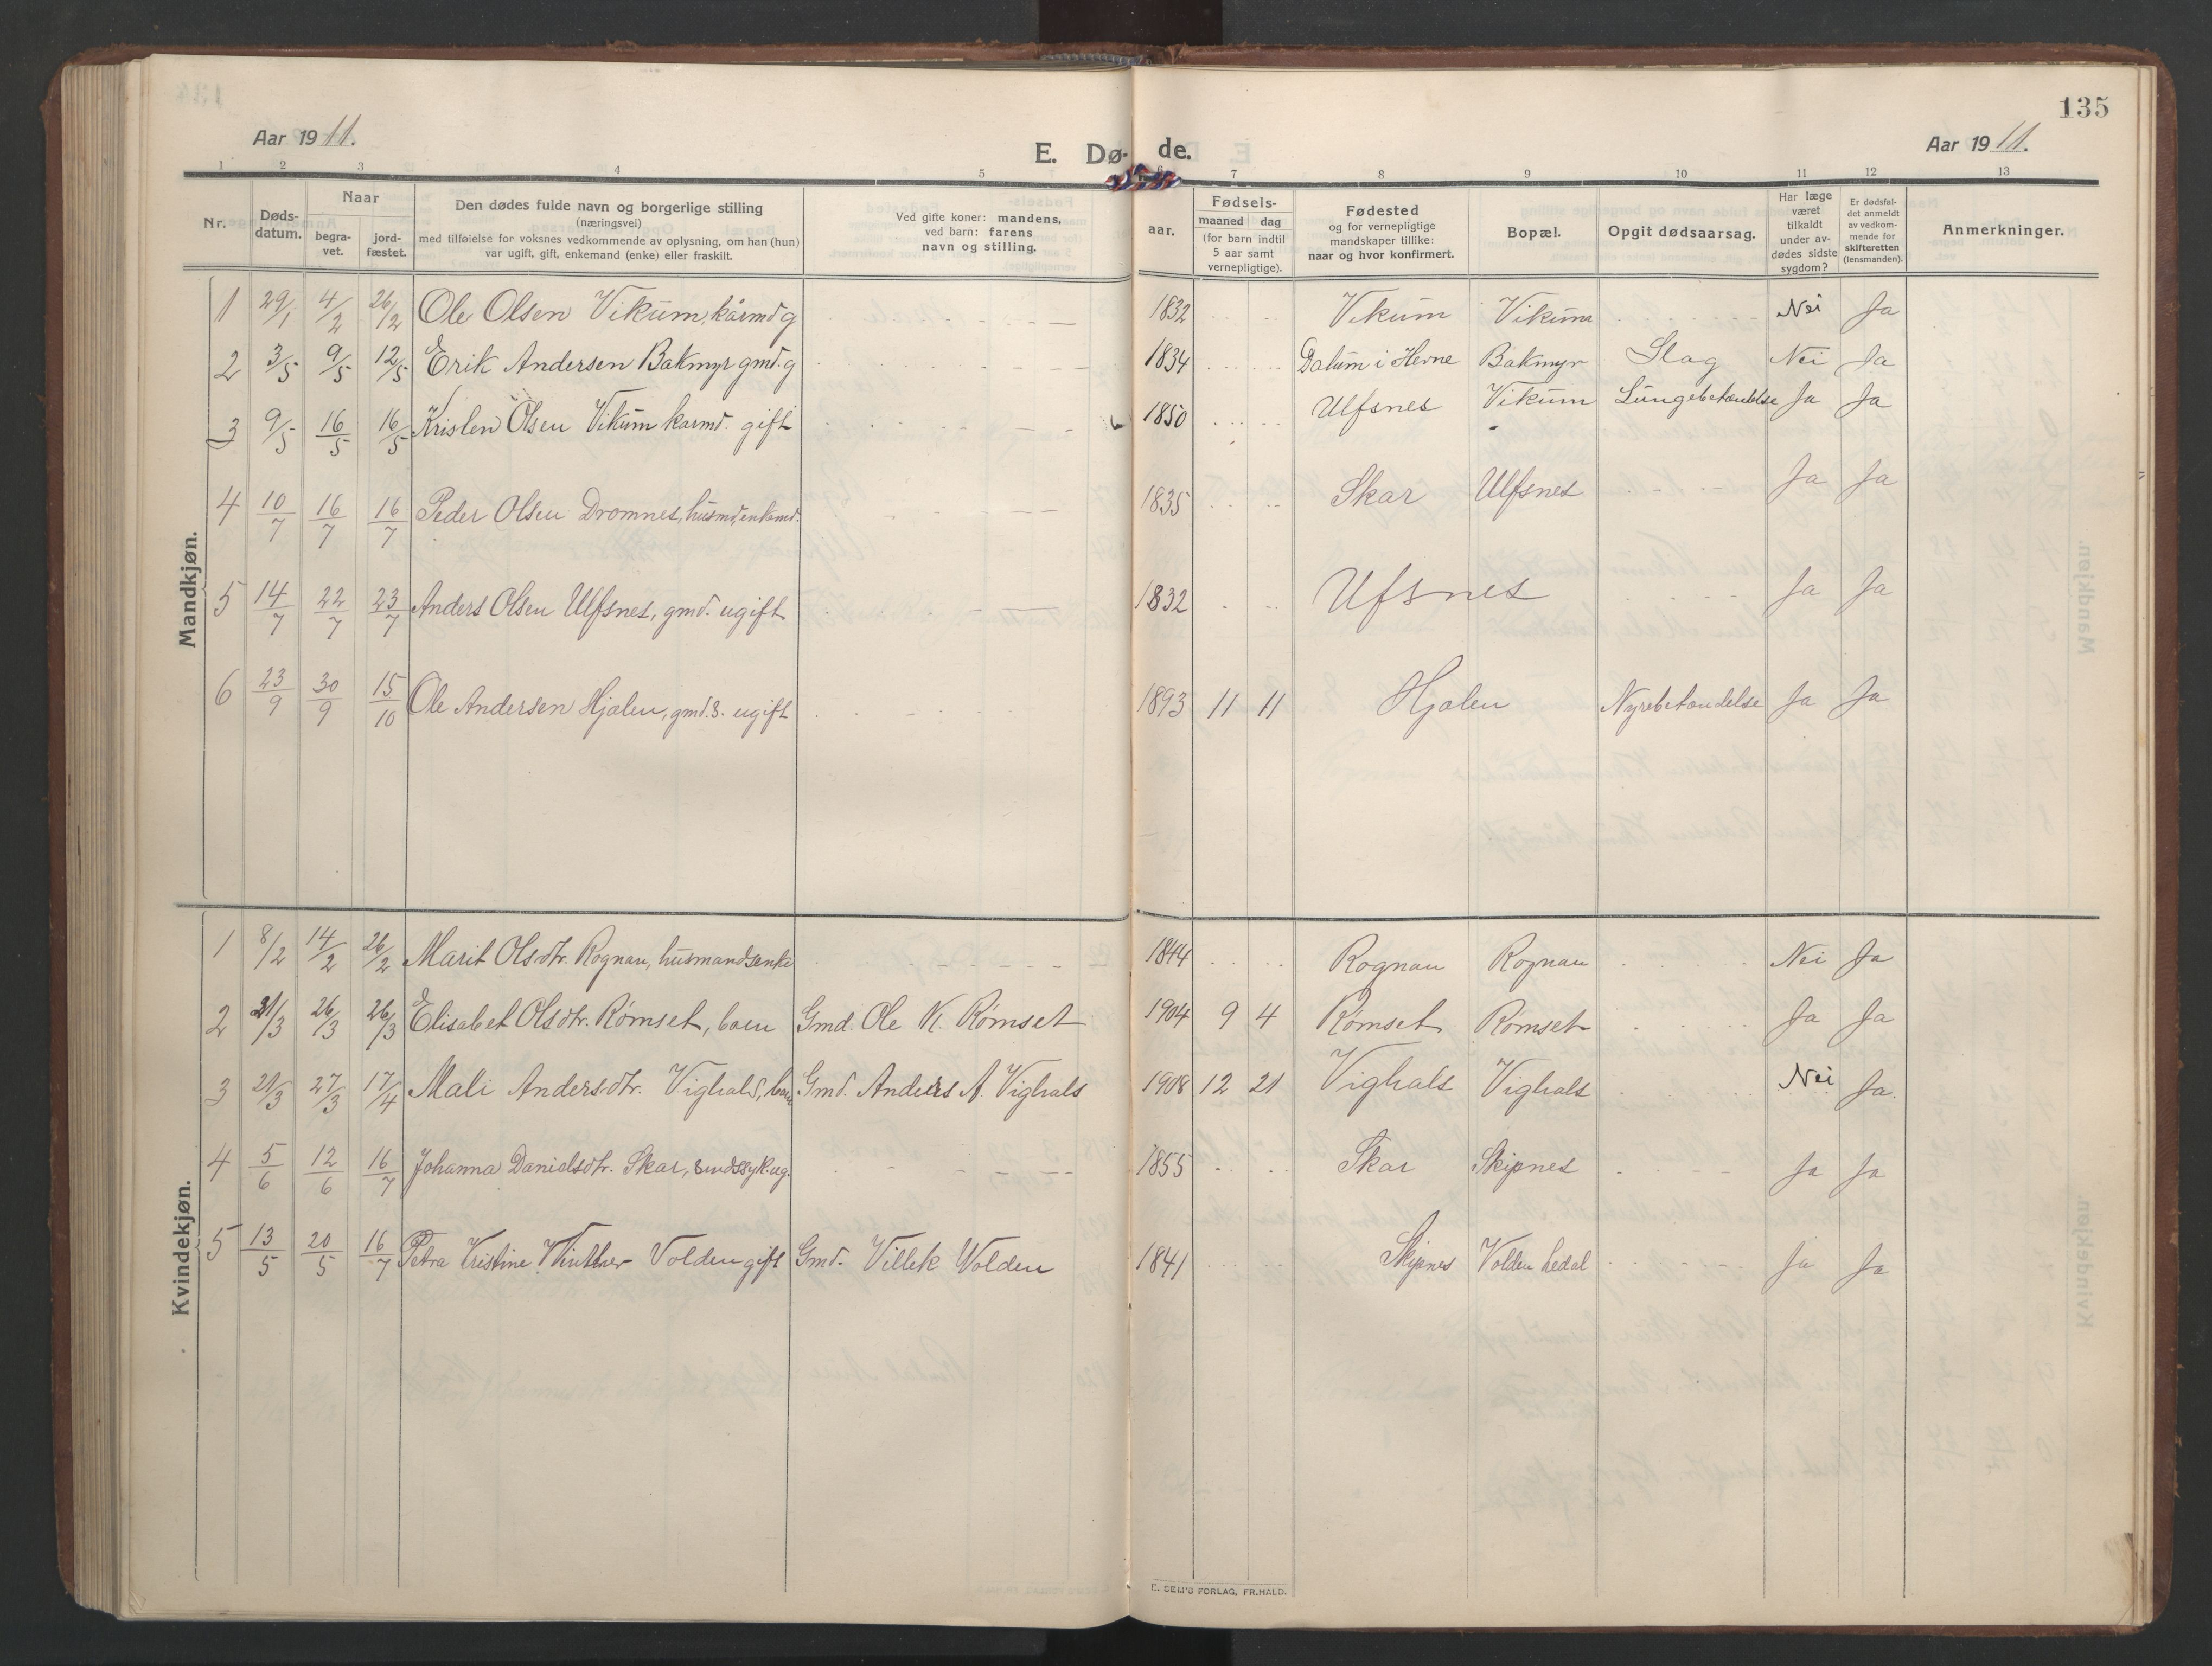 135
Aar 1911.
E. Dø- de.
Aar 1911.
1 2 3 4 5 6 7 8 9 10 11 12 13
Nr.
Døds-
datum.
Naar
begra-
vet.
jord-
fæstet.
Den dødes fulde navn og borgerlige stilling
(næringsvei)
med tilføielse for voksnes vedkommende av oplysning, om han (hun)
var ugift, gift, enkemand (enke) eller fraskilt.
Ved gifte koner: mandens,
ved barn: farens
navn og stilling.
Fødsels-
aar.
maaned dag
(for barn indtil
5 aar samt
vernepligtige).
Fødested
og for vernepligtige
mandskaper tillike:
naar og hvor konfirmert.
Bopæl.
Opgit dødsaarsag.
Har læge
været
tilkaldt
under av-
dødes sidste
sygdom?
Er dødsfal-
det anmeldt
av vedkom-
mende for
skifteretten
(lensmanden).
Anmerkninger.
Mandkjøn.
1 29/1 4/2 26/12 Ole Olsen Vikum, kårmd g 1832 Vikum Vikum Nei Ja
2 3/5 9/5 12/5 Erik Andersen Bakmyr gmd. g 1834 Dalum i Hevne Bakmyr Slag Nei Ja
3 9/5 16/5 16/5 Kristen Olsen Vikum karmd. gift 1850 Ulfsnes Vikum Lungebetændelse Ja Ja
4 10/7 16/7 16/7 Peder Olsen Dromnes, husmd, enkemd. 1835 Skar Ulfsnes Ja Ja
5 14/7 22/7 23/7 Anders Olsen Ulfsnes, gmd. ugift 1832 Ufsnes Ja Ja
6 23/9 30/9 15/10 Ole Andersen Hjalen, gmd.s. ugift 1893 11 11 Hjalen Nyrebetændelse Ja Ja
Kvindekjøn.
1 8/2 14/2 26/2 Marit Olsdtr. Rognau, husmandsenke 1844 Rognau Rognau Nei Ja
2 21/3 26/3 26/3 Elisabet Olsdtr. Rømset, barn Gmd. Ole K. Rømset 1904 9 4 Rømset Rømset Ja Ja
3 21/3 27/3 17/4 Mali Andersdtr. Vighals, barn Gmd. Anders A. Vighals 1908 12 21 Vighals Vighals Nei Ja.
4 5/6 12/6 16/7 Johanna Danielsdtr. Skar, sindssyk. ug. 1855 Skar Skipnes Ja Ja
5 13/5 20/5 16/7 Petra Kristine Winther Volden gift Gmd. Villek Wolden 1841 Skipnes Volden Ledal Ja Ja
E. SEM'S FORLAG, FR.HALD.